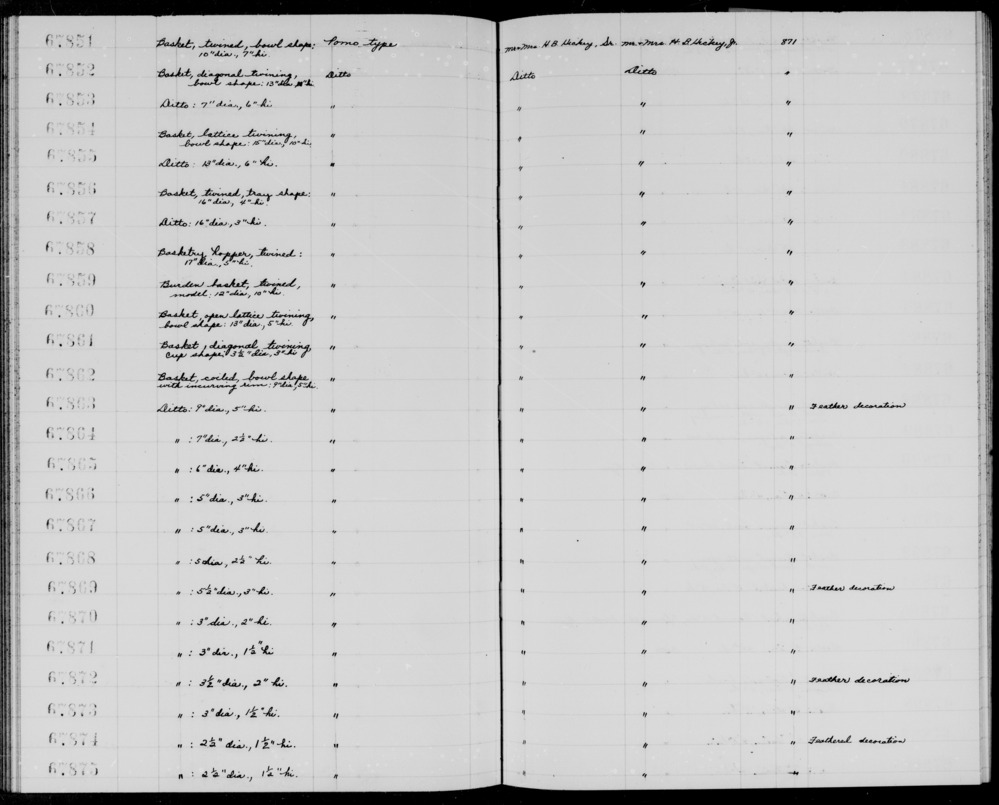 67851 Basket, twined, bowl shape: Pomo type Mr + Mrs H. B. Hickey, Sr. Mr + Mrs H. B. Hickey, Jr. 871
10" dia., 7" hi.
67852 Basket, diagonal twining, Ditto Ditto Ditto "
bowl shape: 13" dia., hi.
67853 Ditto: 7" dia., 6" hi. " " " "
67854 Basket, lattice twining, " " " "
bowl shape: 15" dia., 10" hi.
67855 Ditto: 13" dia., 6" hi. " " " "
67856 Basket, twined, tray shape: " " " "
16" dia., 4" hi.
67857 Ditto: 16" dia., 3" hi. " " " "
67858 Basketry hopper, twined: " " " "
17" dia., 5" hi.
67859 Burden basket, twined, " " " "
model: 12" dia., 10" hi.
67860 Basket, open lattice twining, " " " "
bowl shape: 13" dia., 5" hi.
67861 Basket, diagonal twining, " " " "
cup shape: 3½" dia., 3" hi.
67862 Basket, coiled, bowl shape " " " "
with incurving rim: 9" dia., 5" hi.
67863 Ditto: 9" dia., 5" hi. " " " " Feather decoration
67864 " : 7" dia., 2½" hi. " " " "
67865 " : 6" dia., 4" hi. " " " "
67866 " : 5" dia., 3" hi. " " " "
67867 " : 5" dia., 3" hi. " " " "
67868 " : 5 dia., 2½" hi. " " " "
67869 " : 5½" dia., 3" hi. " " " " Feather decoration
67870 " : 3" dia., 2" hi. " " " "
67871 " : 3" dia., 1½" hi " " " "
67872 " : 3½" dia., 2" hi. " " " " Feather decoration
67873 " : 3" dia., 1½" hi. " " " "
67874 " : 2½" dia., 1½" hi. " " " " Feathered decoration
67875 " : 2½" dia., 1½" hi. " " " "